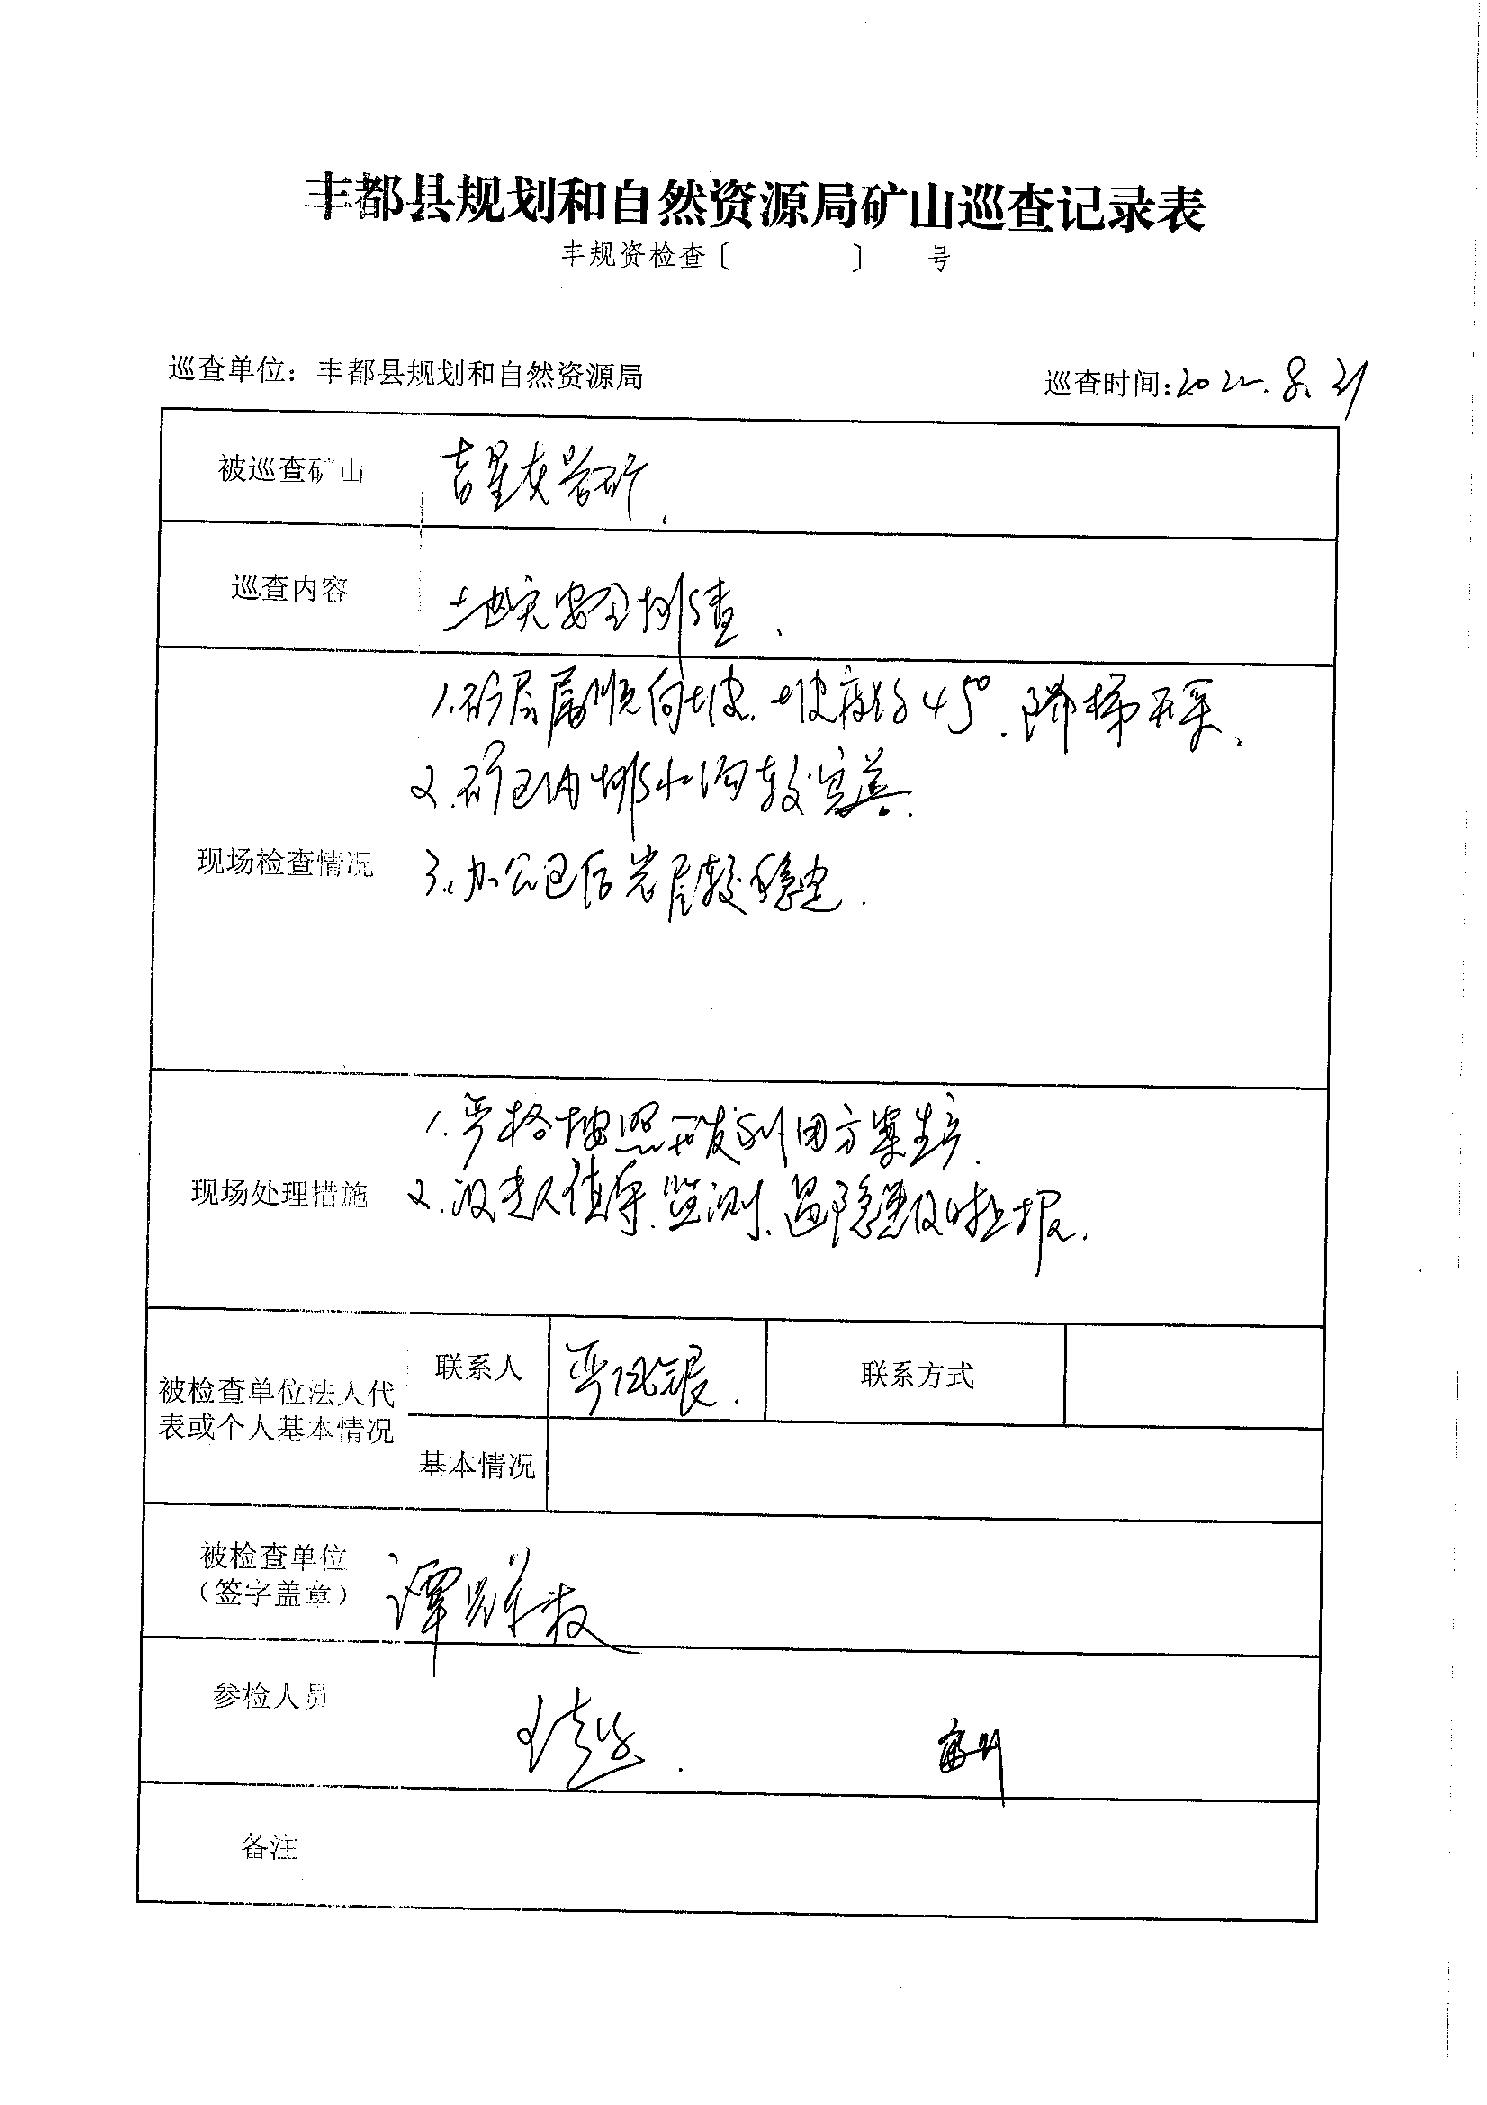 丰都县规划和自然资源局矿山巡查记录表
丰规资检查〔 〕 号
巡查单位：丰都县规划和自然资源局 巡查时间：2022.8.21
被巡查矿山 吉星灰岩矿.
巡查内容 地灾安全排查.
1.矿层属顺向坡.坡度约45°.阶梯开采.
2.矿区内排水沟较完善.
现场检查情况 3.办公区后岩层较稳定.
1.严格按照开发利用方案生产.
现场处理措施 2.设专人值守.监测.遇隐患及时上报.
联系人 联系方式
被检查单位法人代
表或个人基本情况
基本情况
被检查单位
（签字盖章）
参检人员
备注